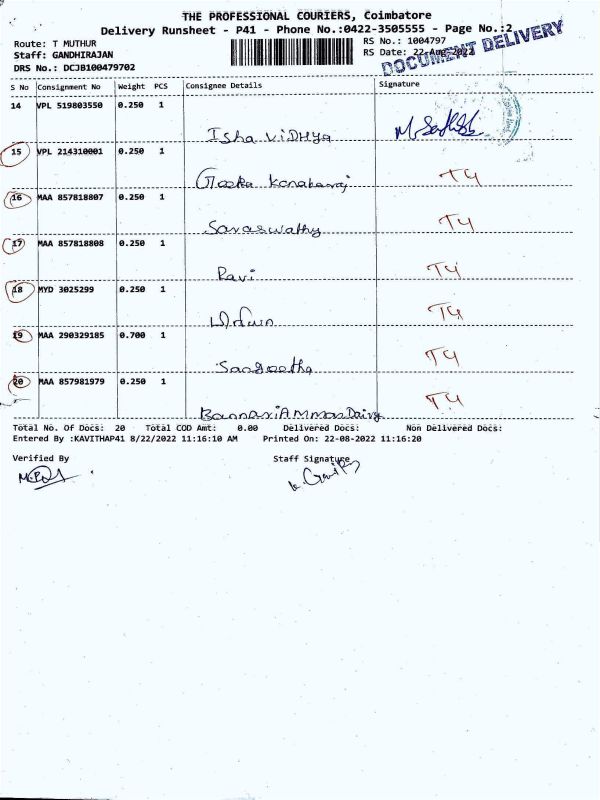 THE PROFESSIONAL COURIERS, Coimbatore
Delivery Runsheet - P41 - Phone No.:0422-3505555 - Page No.:2
Route: T MUTHUR
RS No.: 1004797
Staff: GANDHIRAJAN
RS Date: 22-Aug-2022
DRS No.: DCJB100479702
DOCUMENT DELIVERY
S No Consignment No Weight PCS Consignee Details Signature
14 VPL 519803550 0.250 1
Isha ViDHya
15 VPL 214310001 0.250 1
T4
16 MAA 857818807 0.250 1
Saraswathy T4
17 MAA 857818808 0.250 1
Ravi T4
18 MYD 3025299 0.250 1
T4
19 MAA 290329185 0.700 1
Sangeetha T4
20 MAA 857981979 0.250 1
BannariAmman Dairy T4
Total No. Of Docs: 20 Total COD Amt: 0.00 Delivered Docs: Non Delivered Docs:
Entered By :KAVITHAP41 8/22/2022 11:16:10 AM Printed On: 22-08-2022 11:16:20
Verified By Staff Signature